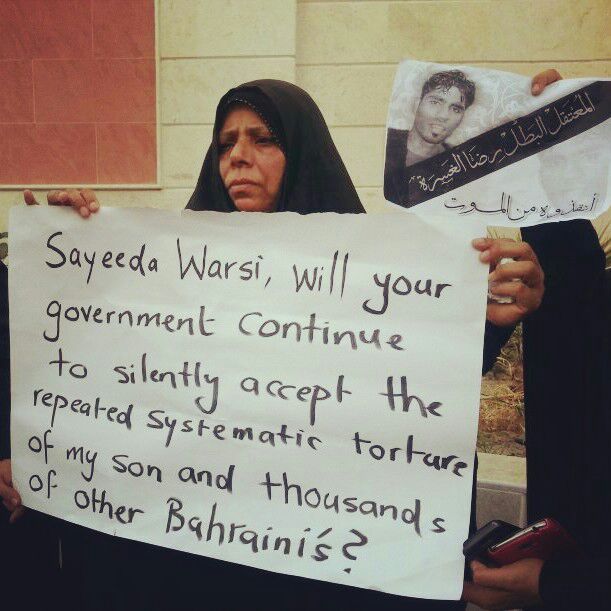 Sayeeda Warsi, will your
government continue
to silently accept the
repeated systematic torture
of my son and thousands
of other Bahraini's?
المعتقل البطل رضا الغسرة
أنقذوه من الموت